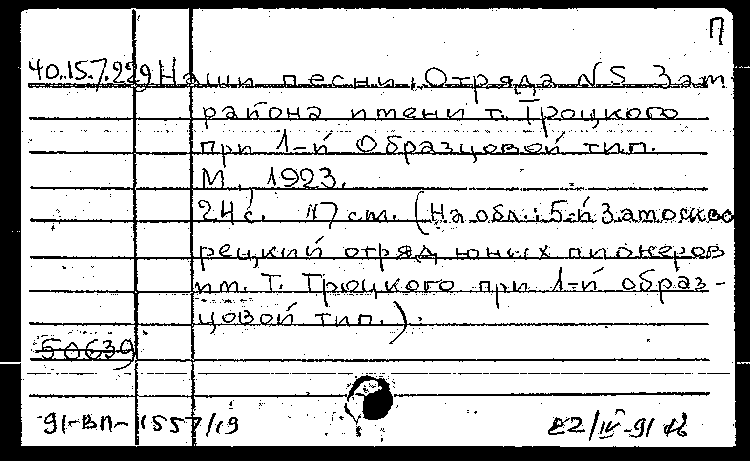 П
40.15.7.229 Наши песни. Отряда N 5 Зам.
района имени т. Троцкого
при 1=й Образцовой тип.
М., 1923.
24 с. 17 см. (На обл.: 5=й Замоскво
рецкий отряд юных пионеров
им. Т. Троцкого при 1=й образ-
цовой тип.).
50639
91-ВП-1557/19
22/IV-91